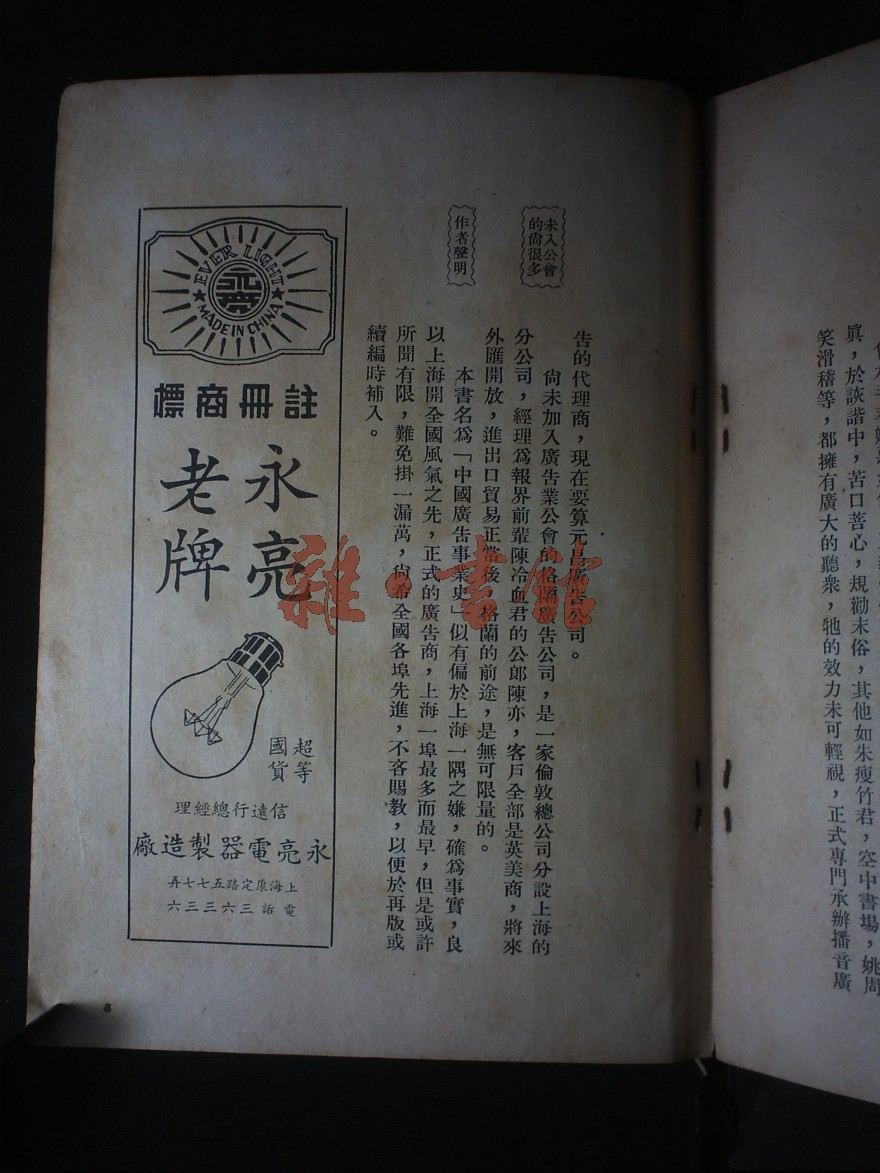 眞，於詼諧中，苦口菩心，規勸末俗，其他如朱瘦竹君，空中書場，姚周
笑滑稽等，都擁有廣大的聽衆，牠的效力未可輕視，正式專門承辦播音廣
告的代理商，現在要算元昌廣告公司。
未入公會
的尙很多
尙未加入廣告業公會的格蘭廣告公司，是一家倫敦總公司分設上海的
分公司，經理爲報界前輩陳冷血君的公郎陳亦，客戶全部是英美商，將來
外匯開放，進出口貿易正常後，格蘭的前途，是無可限量的。
作者聲明
本書名爲「中國廣告事業史」似有偏於上海一隅之嫌，確爲事實，良
以上海開全國風氣之先，正式的廣告商，上海一埠最多而最早，但是或許
所聞有限，難免掛一漏萬，尙希全國各埠先進，不吝賜教，以便於再版或
續編時補入。
EVER LIGHT
永亮
MADE IN CHINA
註冊商標
永亮
老牌
超等
國貨
信遠行總經理
永亮電器製造廠
上海康定路五七七弄
電話三六三三六
雜·書館